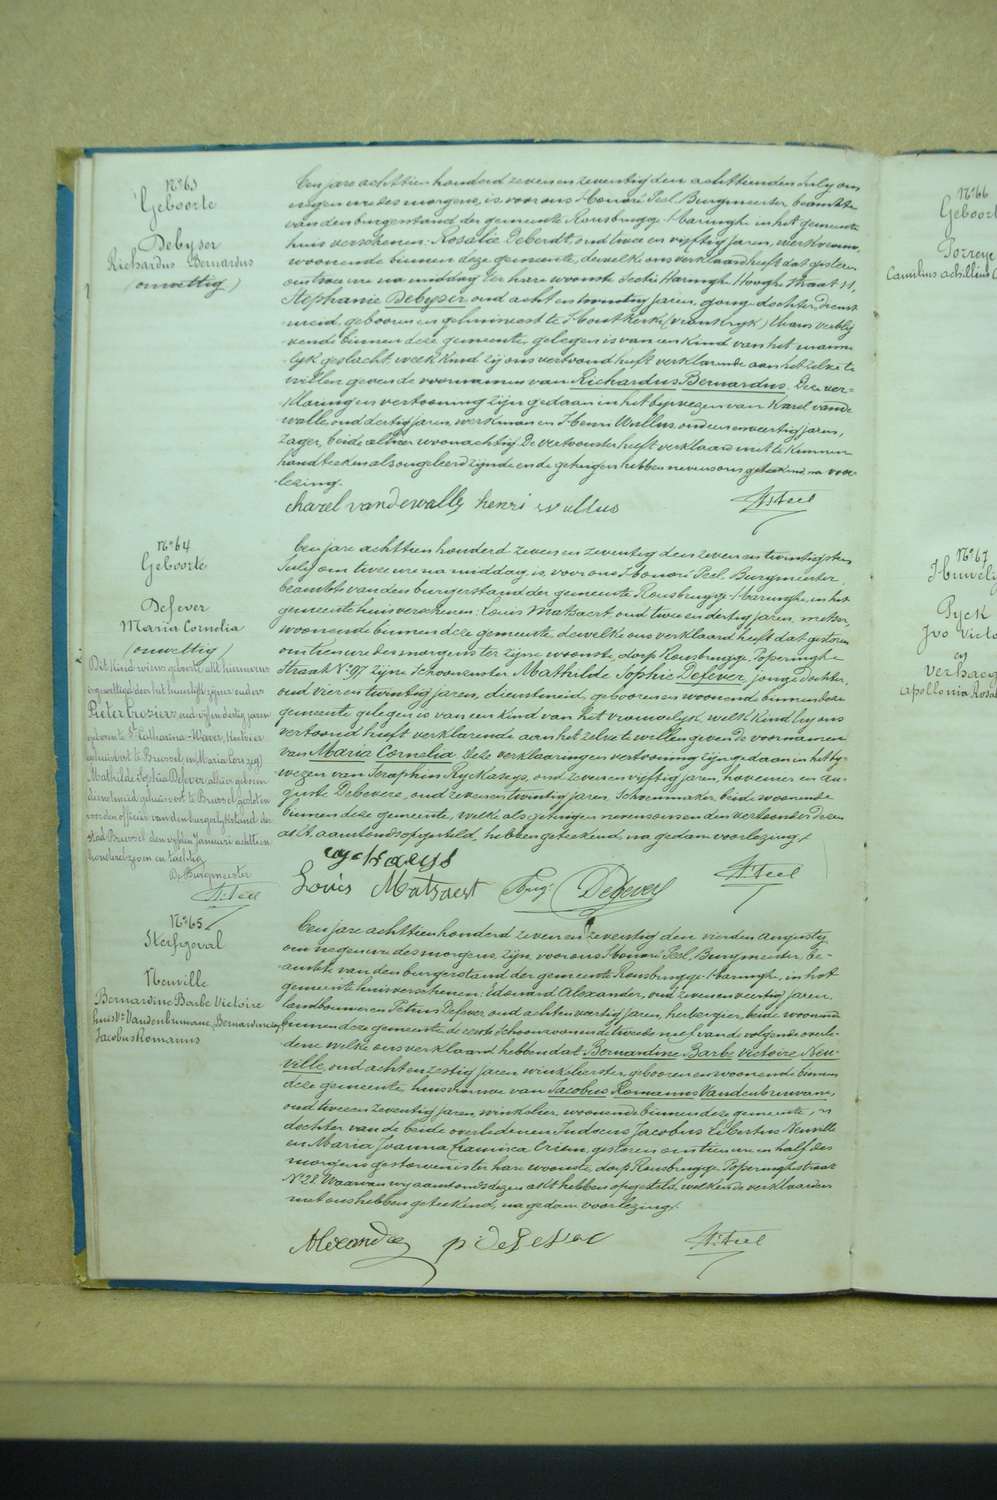 N° 63
Geboorte
Debyser
Richardus Bernardus
(onwettig)
Een jare achttien honderd zeven en zeventig den achttienden July om
negen ure des morgens, is voor ons Honoré Peel, Burgmeester, beambte
van den burgerstand der gemeente Rousbrugge-Haringhe in het gemeente
huis verschenen: Rosalie Deberdt, oud twee en vijftig jaren, werkvrouw,
woonende binnen deze gemeente, dewelke ons verklaard heeft dat gisteren
om twee ure na middag ter hare woonste Sectie Haringhe Hooghe straat
Stephanie Debyser oud acht en twintig jaren, jonge dochter, dienst
meid, geboren en gehuisvest te Houtkerke (vrankryk) thans verbly
vende binnen deze gemeente, gelegen is van een kind van het manne
lyk geslacht welk kind zy ons vertoond heeft verklarende aan hetzelve te
willen geven de voornamen van Richardus Bernardus. Deze ver-
klaring en vertooning zyn gedaan in het bywezen van Karel vande
walle, oud dertig jaren, werkman en Henri Wullus, oud en veertig jaren,
zager, beide alhier woonachtig. De vertoonster heeft verklaard niet te kunnen
handteekenen als ongeleerd zynde en de getuigen hebben nevens ons geteekend, na voor
lezing.
charel vandewalle henri wullus H. Peel
N° 64
Geboorte
Defever
Maria Cornelia
(onwettig)
Dit kind wiens geboorte akt hiernevens
is gewettigd door het huwelyk zyner ouders
Pieter Crozier, oud vyf en dertig jaren
geboren te St Catharina-Waver,
gehuisvest te Brussel en
Mathilde Sophia Defever, alhier geboren
dienstmeid gehuisvest te Brussel, gesloten
voor den officier van den burgerlyk stand der
stad Brussel den vyfden Januari achttien
honderd zeven en tachtig
De Burgmeester
H. Peel
Een jare achttien honderd zeven en zeventig den zeven en twintigsten
July om twee ure na middag, is voor ons Honoré Peel, Burgmeester,
beambte van den burgerstand der gemeente Rousbrugge-Haringhe, in het
gemeente huis verschenen: Louis Matsaert, oud twee en dertig jaren, metser,
woonende binnen deze gemeente, dewelke ons verklaard heeft dat gisteren
om tien ure des morgens ter zyne woonste, dorp Rousbrugge, Poperinghe
straat N° 97 zyne schoonzuster Mathilde Sophie Defever, jonge dochter,
oud vier en twintig jaren, dienstmeid, geboren en woonende binnen deze
gemeente, gelegen is van een kind van het vrouwelyk, welk kind hy ons
vertoond heeft verklarende aan hetzelve te willen geven de voornamen
van Maria Cornelia. Deze verklaaring en vertooning zyn gedaan in het by-
wezen van Seraphin Ryckasys, oud zeven en vyftig jaren, hovenier en Au-
guste Debevere, oud zeven en twintig jaren, Schoenmaker, beide woonende
binnen deze gemeente, welke als getuigen nevens ons en den vertoonder dezen
akt, aanstonds opgesteld, hebben geteekend, na gedane voorlezing.
Louis Matsaert Aug. Debevere H. Peel
N° 65
Sterfgeval
Neuville
Bernardine Barbe Victoire
huisvr. Vandenbruwane,
Jacobus Romanus
Een jare achttien honderd zeven en zeventig den vierden Augusty
om negen ure des morgens, zyn voor ons Honoré Peel, Burgmeester, be-
ambte van den burgerstand der gemeente Rousbrugge-Haringhe, in het
gemeente huis verschenen: Edouard Alexander, oud zeven en veertig jaren,
landbouwer en Petrus Defever oud achten veertig jaren, herbergier, beide woonende
binnen deze gemeente de eerste schoonzoon en de tweede neef van de volgende overle-
dene welke ons verklaard hebben dat Bernardine Barbe Victoire Neu-
ville, oud acht en zestig jaren winkelierster, geboren en woonende binnen
deze gemeente, huisvrouw van Jacobus Romanus Vandenbruwane,
oud twee en zeventig jaren, winkelier, woonende binnen deze gemeente,
dochter van de beide overledenen Judocus Jacobus Libertus Neuville
en Maria Joanna Francisca gisteren om tien ure en half des
morgens gestorven is ter hare woonste, dorp Rousbrugge, Poperinghestraat
N° 28. Waarvan wy aanstonds dezen akt hebben opgesteld, welken de verklaarders
met ons hebben geteekend, na gedane voorlezing.
Alexander p. defever H. Peel
N° 66
Geboort
Camilius achillius
N° 67
Huwelij
Pyck
Ivo Victo
en
Verhaeg
Apollonia Rosal